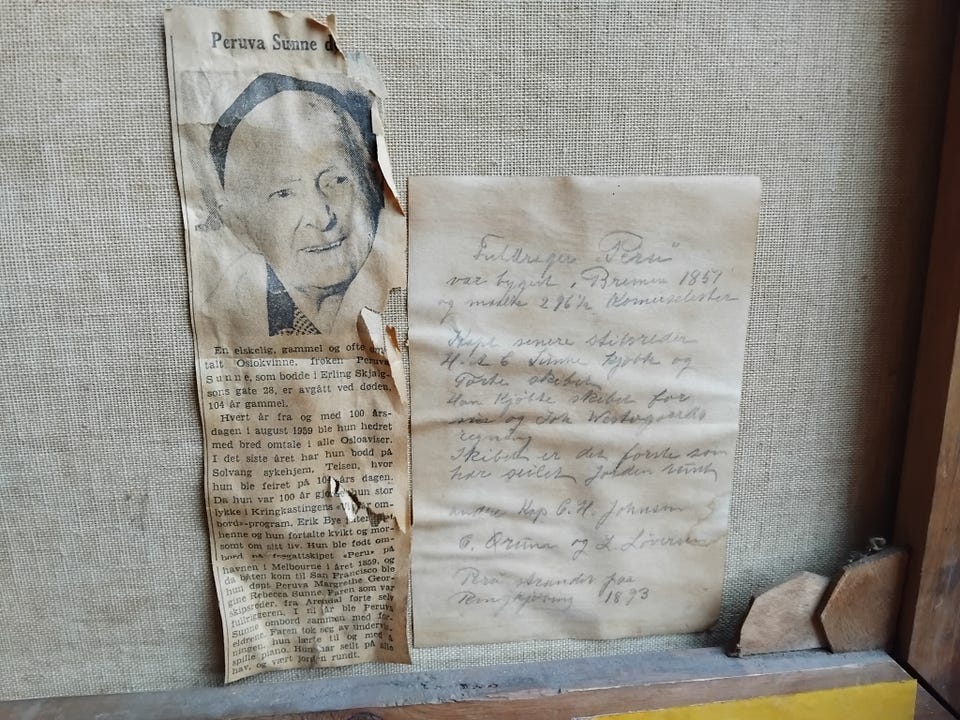 Peruva Sunne
En elskelig, gammel og ofte
talt Oslokvinne, frøken Peruva
Sunne, som bodde i Erling Skjalg-
sons gate 28, er avgått ved døden,
104 år gammel.
Hvert år fra og med 100 års-
dagen i august 1959 ble hun hedret
med bred omtale i alle Osloaviser.
I det siste året har hun bodd på
Solvang sykehjem, Teisen, hvor
hun ble feiret på 104 års dagen.
Da hun var 100 år hun stor
lykke i Kringkastingens om-
bord»-program. Erik Bye
henne og hun fortalte kvikt og mor-
somt om sitt liv. Hun ble født om-
bord på fregattskipet «Peru» på
havnen i Melbourne i året 1859, og
da båten kom til San Francisco ble
hun døpt Peruva Margrethe Geor-
gine Rebecca Sunne. Faren som var
skipsreder, fra Arendal førte selv
fullriggeren. I ni år ble Peruva
Sunne ombord sammen med for-
eldrene. Faren tok seg av undervis-
ningen, hun lærte til og med å
spille piano. Hun har seilt på alle
hav, og vært jorden rundt.
Fuldrigger "Peru"
var bygget i Bremen 1857
og maalte 296½ Komerselester
Kapt senere
Sunne og
førte skibet
Han skibet for
og Joh
regning
Skibet er det første som
har seilet Jorden rundt
andre Kap C. H. Johnsen
og L.
Peru strander paa
1893